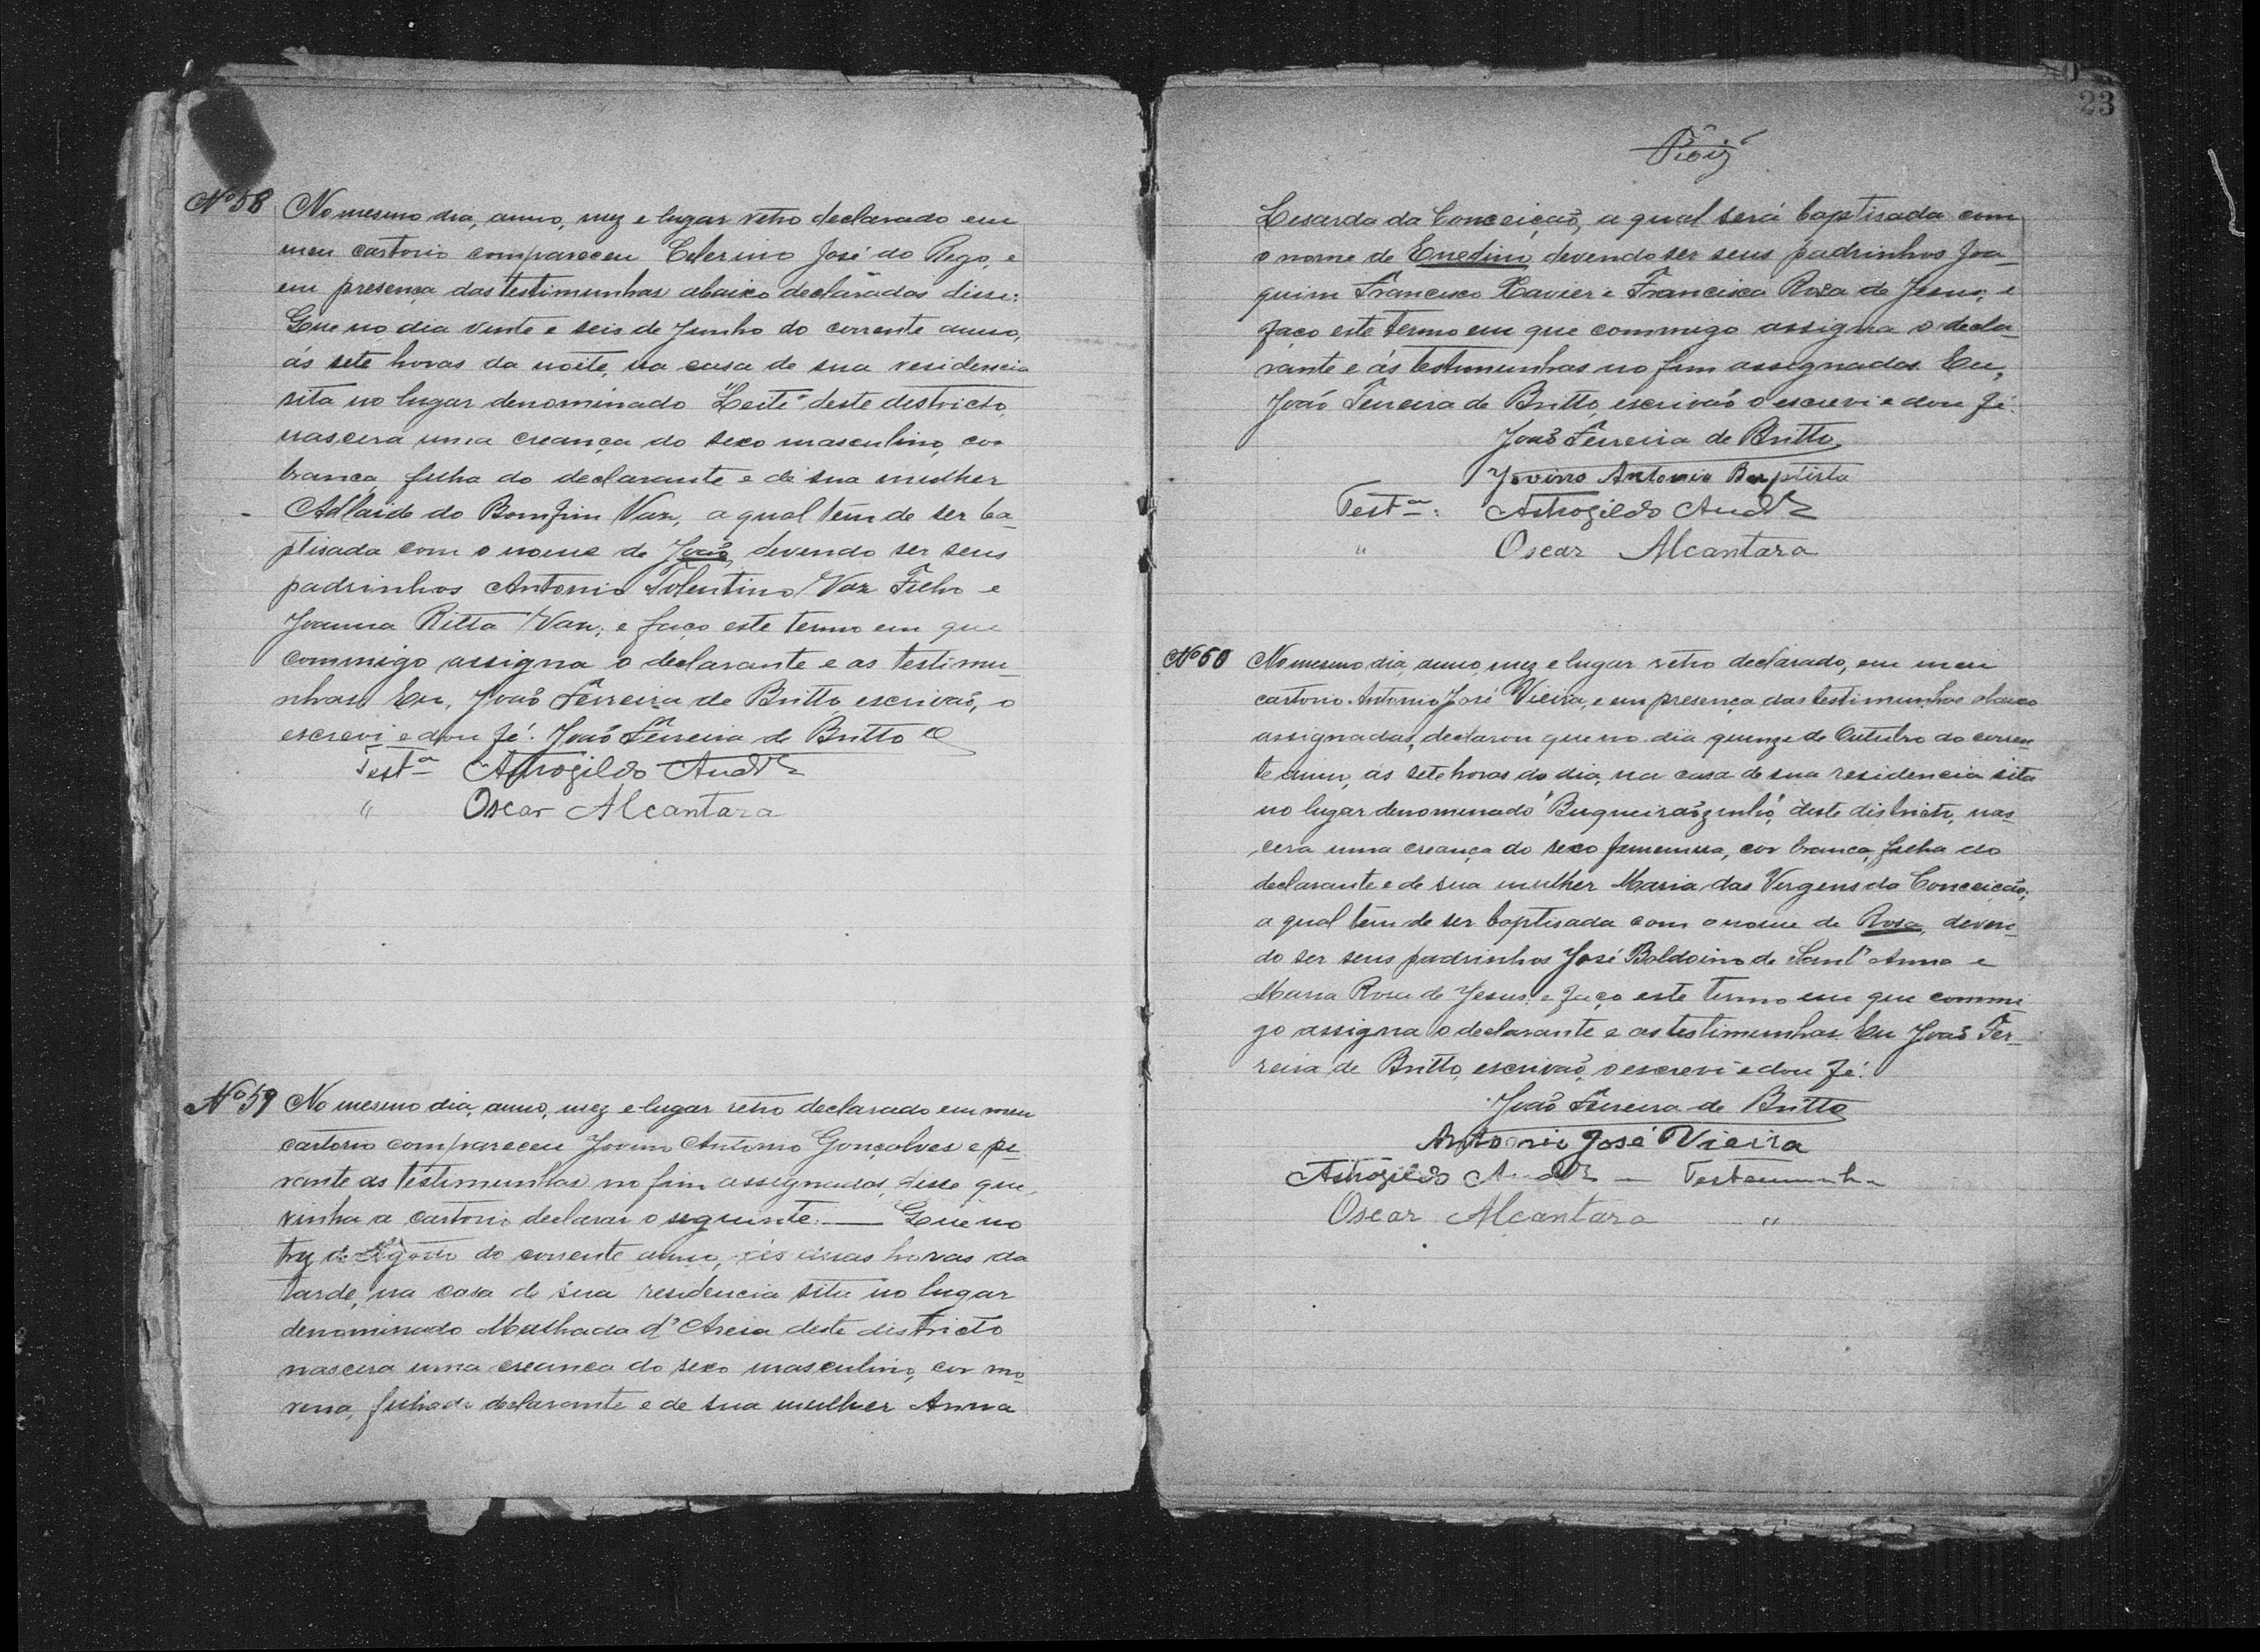 Nº 58 No mesmo dia, anno, mez e lugar retro declarado em
meu cartorio compareceu Celerino José do Rego, e
em presença das testimunhas abaixo declaradas disse:
Que no dia vinte e seis de Junho do corrente anno,
ás sete horas da noite, na casa de sua residencia
sita no lugar denominado "Leite" deste districto,
nascera uma creança do sexo masculino, cor
branca, filha do declarante e de sua mulher
Adlaide do Bomfim Vaz, a qual tem de ser ba-
ptisada com o nome de João, devendo ser seus
padrinhos Antonio Tolentino Vaz Filho e
Joanna Ritta Vaz; e faço este termo em que
commigo assigna o declarante e as testimu-
nhas. Eu, João Ferreira de Britto escrivaõ, o
escrevi e dou fé. João Ferreira de Britto
Testª Astrogildo
" Oscar Alcantara
Nº 59 No mesmo dia, anno, mez e lugar retro declarado em meu
cartorio compareceu Antonio Gonçalves e pe-
rante as testimunhas no fim assignadas, disse que
vinha a cartorio declarar o seguinte: — Que no
trez de Agosto do corrente anno, ás duas horas da
tarde, na casa de sua residencia sita no lugar
denominado Malhada d'Areia deste districto
nascera uma creanca do sexo masculino, cor mo-
rena, filha do declarante e de sua mulher Anna
23
Lisarda da Conceição, a qual será baptisada com
o nome de Enedino, devendo ser seus padrinhos Joa-
quim Francisco Xavier e Francisca Roza de Jesus, e
faço este termo em que commigo assigna o decla-
rante e ás testimunhas no fim assignadas. Eu,
João Ferreira de Britto, escrivaõ o escrevi e dou fé.
João Ferreira de Britto
Jovino Antonio Baptista
Testª: Astrogildo
" Oscar Alcantara
Nº 60 No mesmo dia, anno, mez e lugar retro declarado, em meu
cartorio Antonio José Vieira, e em presença das testimunhas abaixo
assignadas, declarou que no dia quinze de Outubro do corren-
te anno, ás sete horas do dia, na casa de sua residencia sita
no lugar denominado "Buqueirãozinho", deste districto, nas-
cera uma creança do sexo femenina, cor branca, filha do
declarante e de sua mulher Maria das Virgens da Conceicão;
a qual tem de ser baptisada com o nome de Rosa, deven-
do ser seus padrinhos José Baldoino de Sant'Anna e
Maria Rosa de Jesus; e faço este termo em que commi-
go assigna o declarante e as testimunhas. Eu João Fer-
reira de Britto, escrivaõ, o escrevi e dou fé.
João Ferreira de Britto
Antonio José Vieira
Astrogildo — Testemunha
Oscar Alcantara "